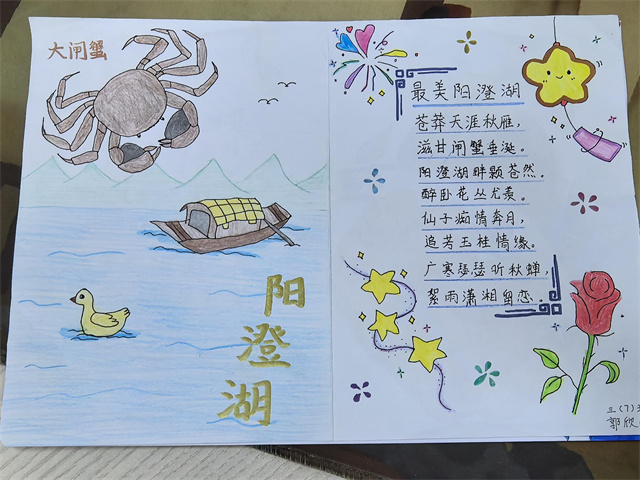 大闸蟹
阳
澄
湖
最美阳澄湖
苍莽天涯秋雁,
滋甘闸蟹垂涎。
阳澄湖畔颗苍然。
醉卧花丛尤羡。
仙子痴情奔月,
追若玉柱情缘。
广寒瑟瑟听秋蝉,
絮雨潇湘留恋。
三(7)
郭欣